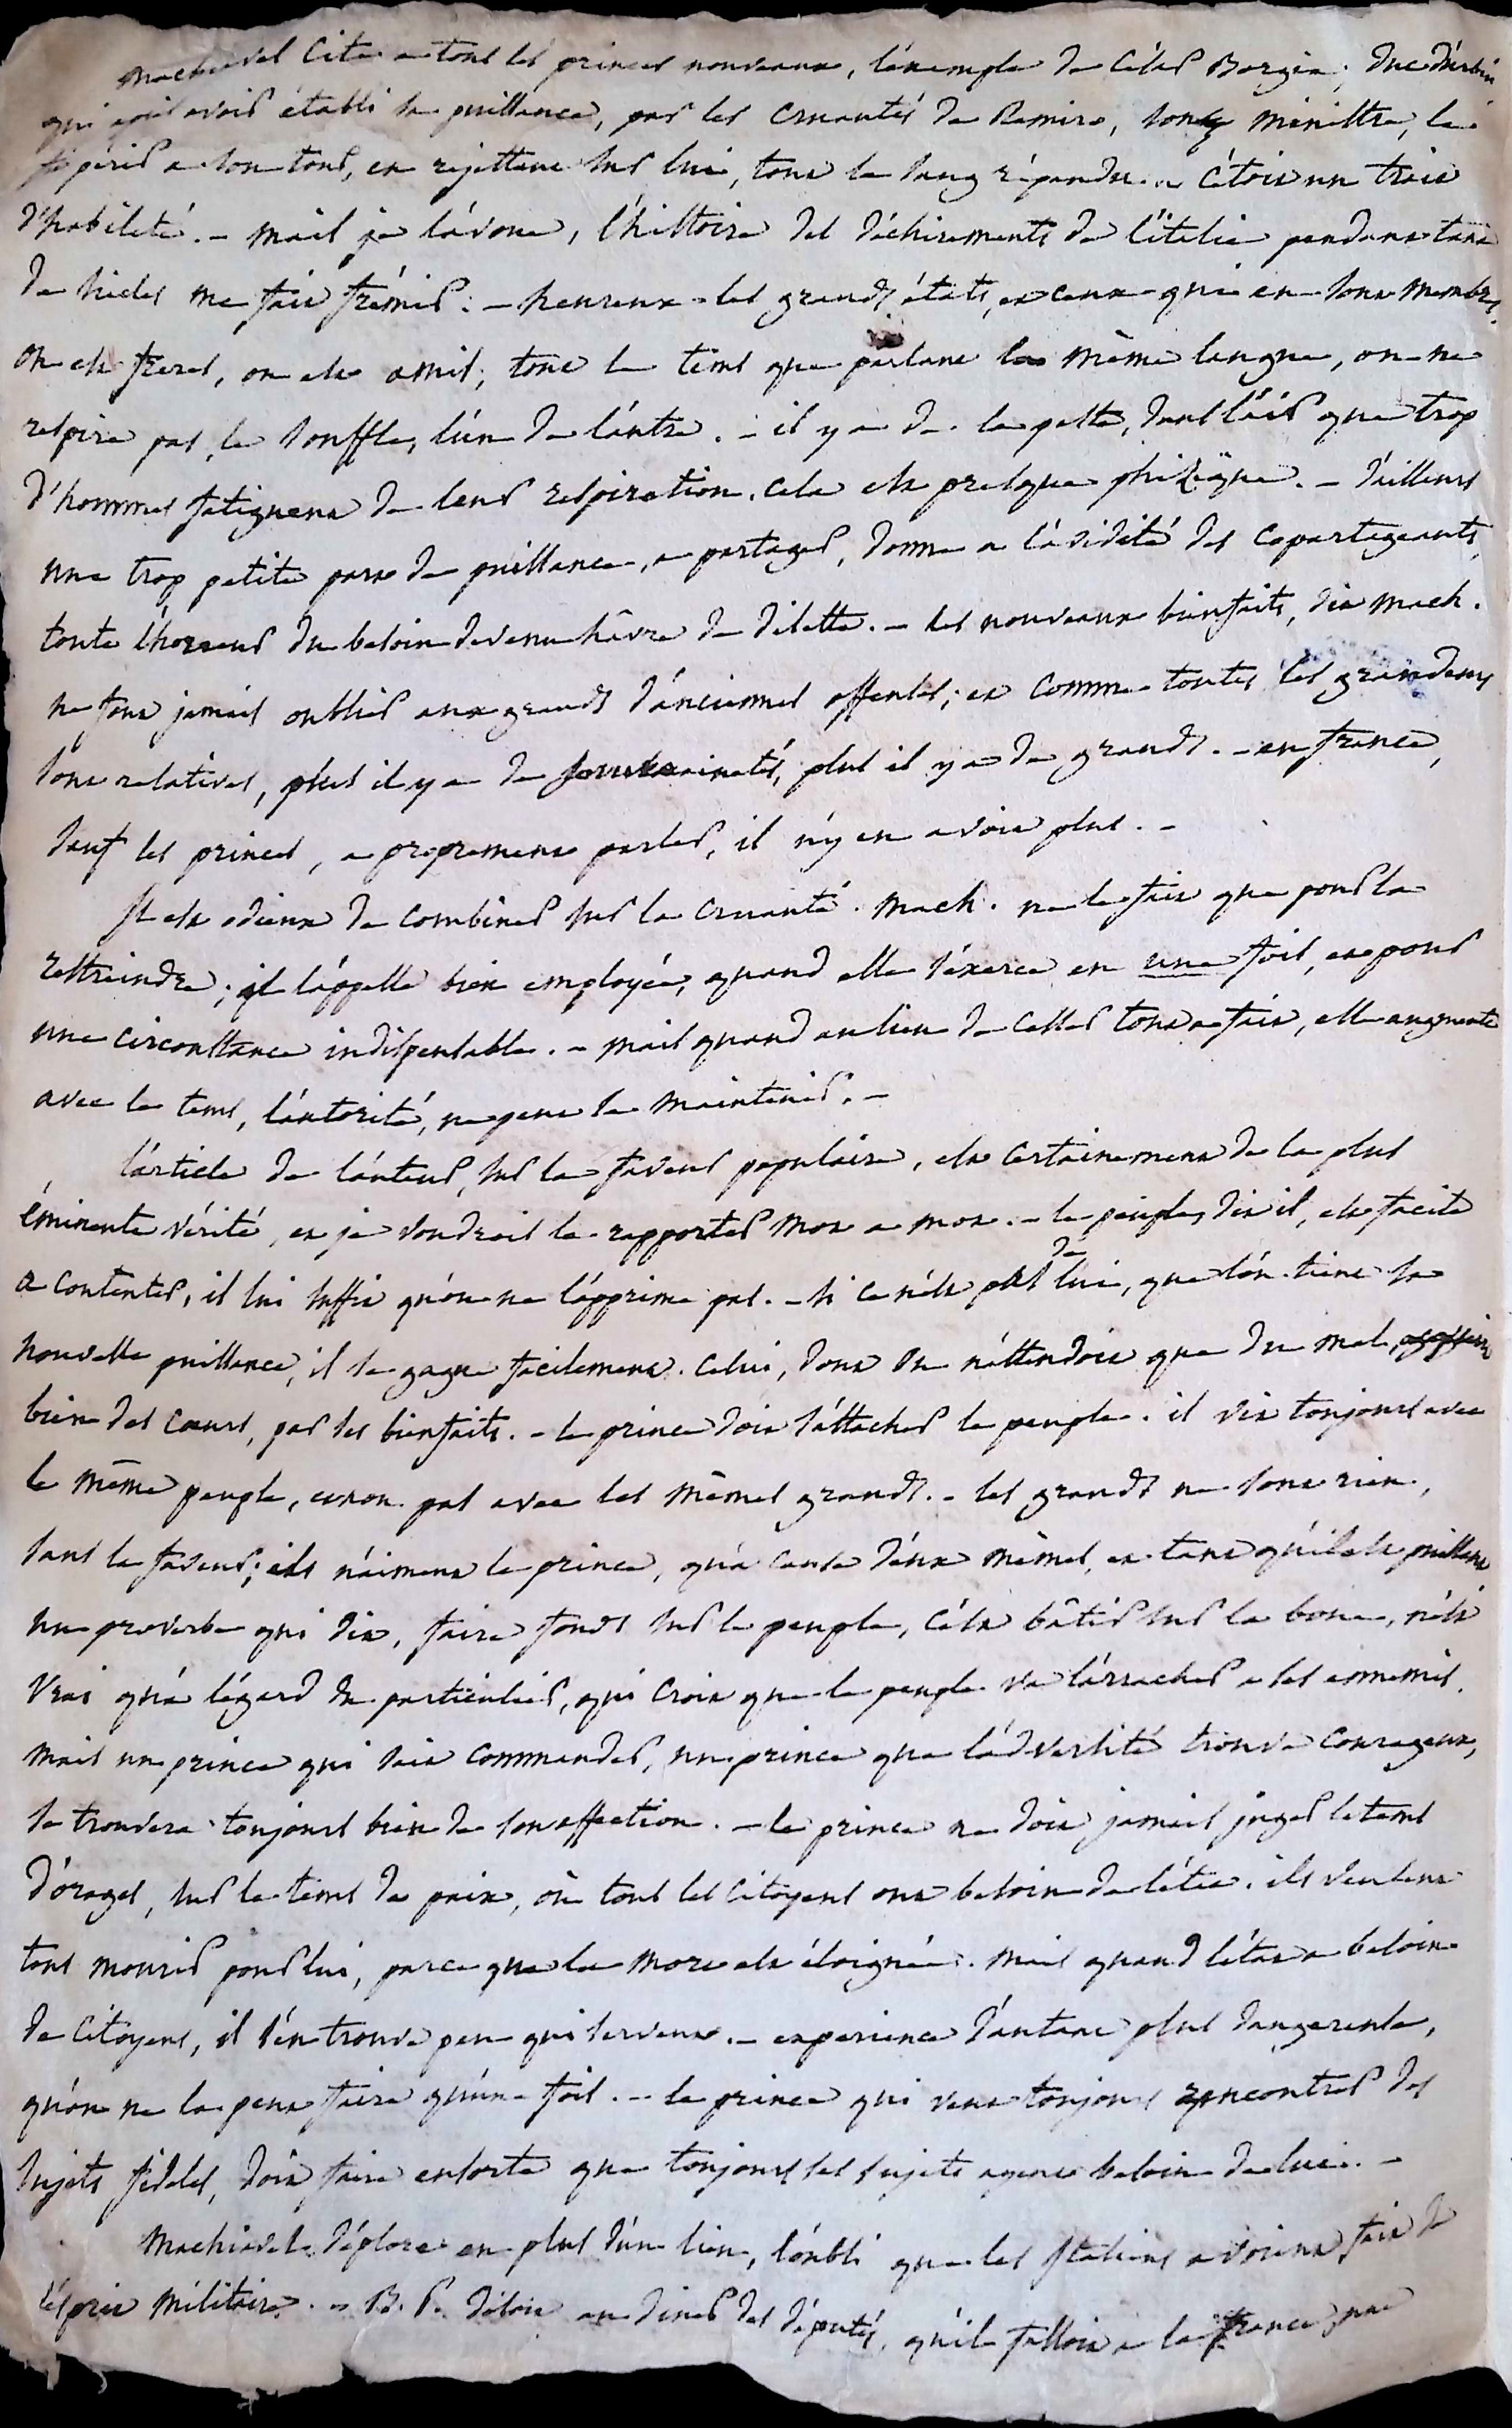 Machiavel cite a tous les princes nouveaux, l'éxemple de César Borgia, duc d'urbin
qui avoit établi sa puissance, par les cruautés de Ramiro, son ministre, le
fit périr a son tour, en rejettant sur lui, tout le sang répandu. c'étoit un trait
d'habileté. - mais je l'avoue, l'histoire des déchirements de l'italie pendant tant
de siecles me fait frémir. - heureux les grands états, et ceux qui en sont membres.
on est freres, on est amis, tout le tems que parlant la même langue, on ne
respire pas, le souffle, l'un de l'autre. - il y a de la peste, dans l'air que trop
d'hommes fatiguent de leur respiration. cela est presque phisique. - d'ailleurs
une trop petite part de puissance, a partager, donne a l'avidité des copartageants,
toute l'horreur du besoin devenu hâvre de disette. - les nouveaux bienfaits, dit mach.
ne font jamais oublier aux grands d'anciennes offenses; et comme toutes les grandeurs
sont relatives, plus il y a de souverainetés, plus il y a de grands. - en france,
sauf les princes, a proprement parler, il n'y en avoit plus. -
Il est odieux de combiner sur la cruauté. Mach. ne le fait que pour la
restreindre; il l'appelle bien employée, quand elle s'éxerce en une fois, et pour
une circonstance indispensable. - mais quand au lieu de cesser tout a fait, elle augmente
avec le tems, l'autorité, ne peut se maintenir. -
l'article de l'auteur, sur la faveur populaire, est certainement de la plus
éminente vérité, et je voudrois le rapporter mot a mot. - le peuple, dit il, est facile
a contenter, il lui suffit qu'on ne l'opprime pas. - si ce n'est pas de lui, que l'on tient sa
nouvelle puissance, il se gagne facilement. celui, dont on n'attendoit que du mal,
bien des cœurs, par ses bienfaits. - le prince doit s'attacher le peuple. il vit toujours avec
le même peuple, et non pas avec les mêmes grands. - les grands ne sont rien,
sans la faveur; ils n'aiment le prince, qu'a cause d'eux mêmes, et tant qu'il est puissant
un proverbe qui dit, faire fonds sur le peuple, c'est bâtir sur la boue, n'est
vrai qu'a l'égard du particulier, qui croit que le peuple va l'arracher a ses ennemis.
mais un prince qui sait commander, un prince que l'adversité trouve courageux,
se trouvera toujours bien de son affection. - le prince ne doit jamais juger le tems
d'orages, sur le tems de paix, où tous les citoyens ont besoin de l'état. ils veulent
tous mourir pour lui, parce que la mort est éloignée. mais quand l'état a besoin
de citoyens, il s'en trouve peu qui servent. - experience d'autant plus dangereuse,
qu'on ne la peut faire qu'une fois. - le prince qui veut toujours rencontrer des
sujets fideles, doit faire ensorte que toujours ses sujets ayent besoin de lui. -
Machiavel déplore en plus d'un lieu, l'oubli que les Italiens avoient fait de
l'esprit militaire. - B. P. disoit au diner des députés, qu'il falloit a la france, une